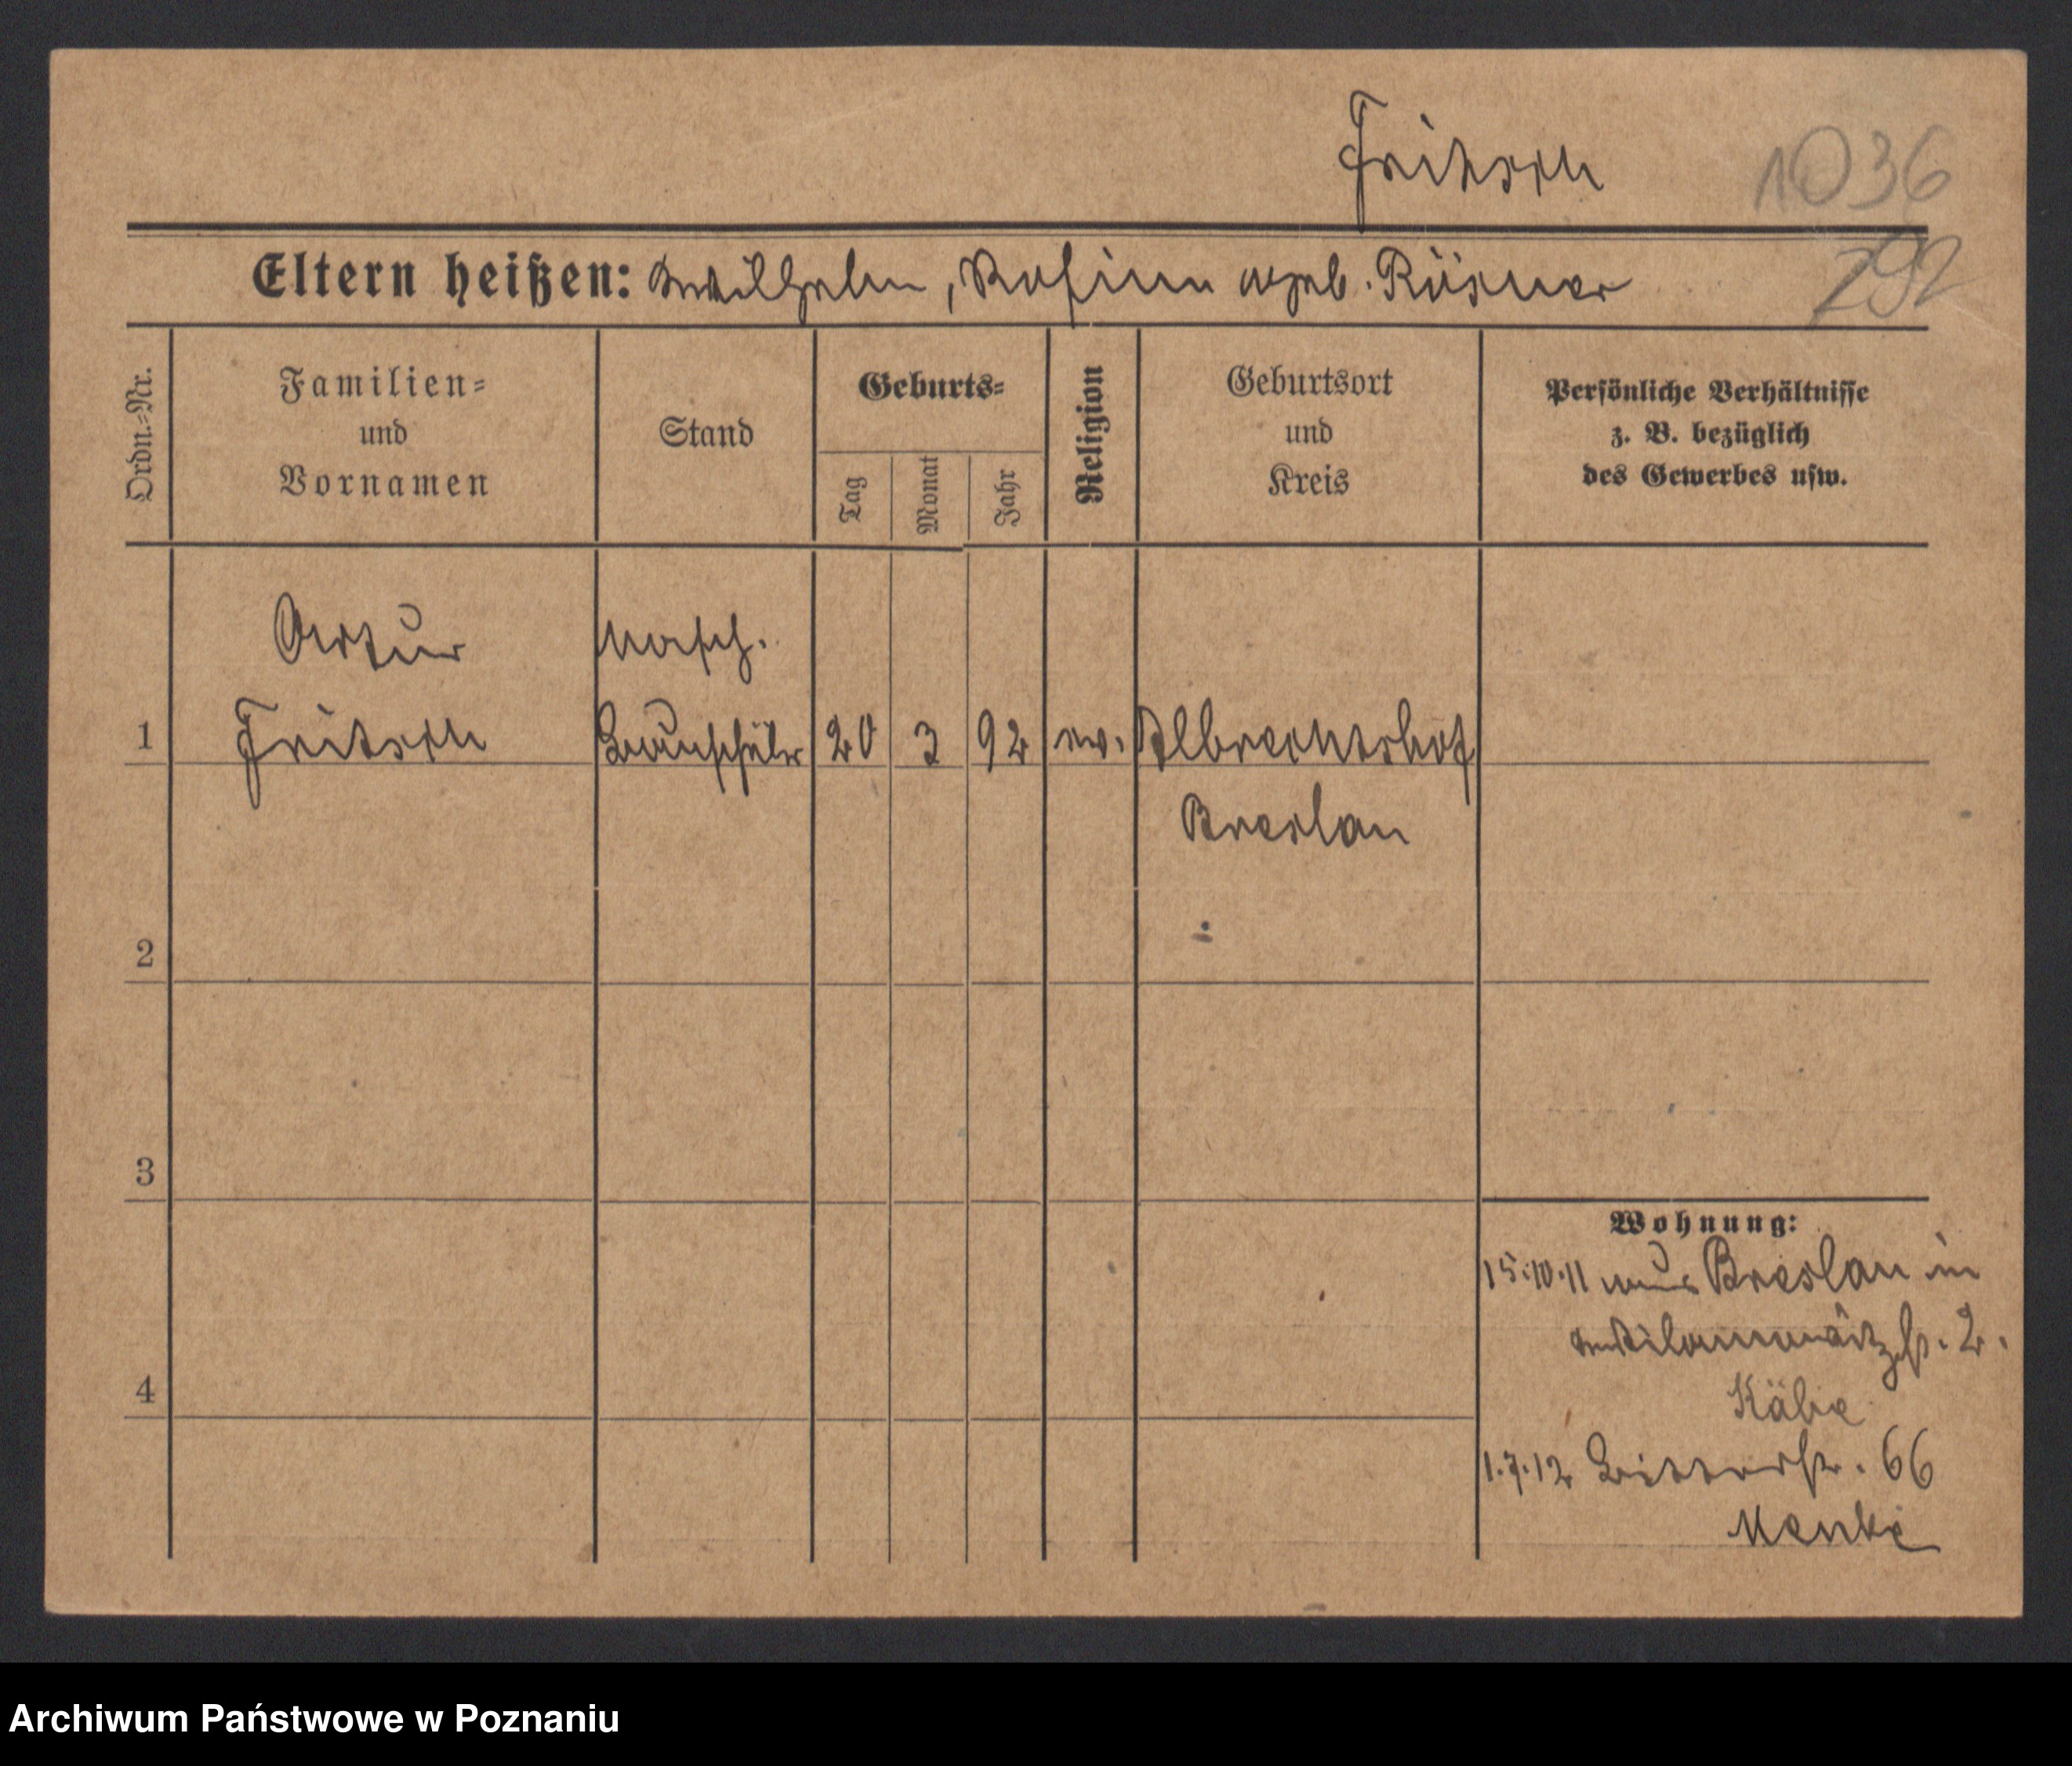 Fritsch
1036
Eltern heißen: Wilhelm, Rosina geb. Rösner
292
Ordn.-Nr.
Familien-
und
Vornamen
Stand
Geburts-
Tag
Monat
Jahr
Religion
Geburtsort
und
Kreis
Persönliche Verhältnisse
z. B. bezüglich
des Gewerbes usw.
Artur
Masch.
1
Fritsch
Bauschüler
20
3
92
ev.
Albrechtshof
Breslau
2
3
4
Wohnung:
15.10.11 aus Breslau in
2.
Käbe
1.7.12 Ritterstr. 66
Menke
Archiwum Państwowe w Poznaniu